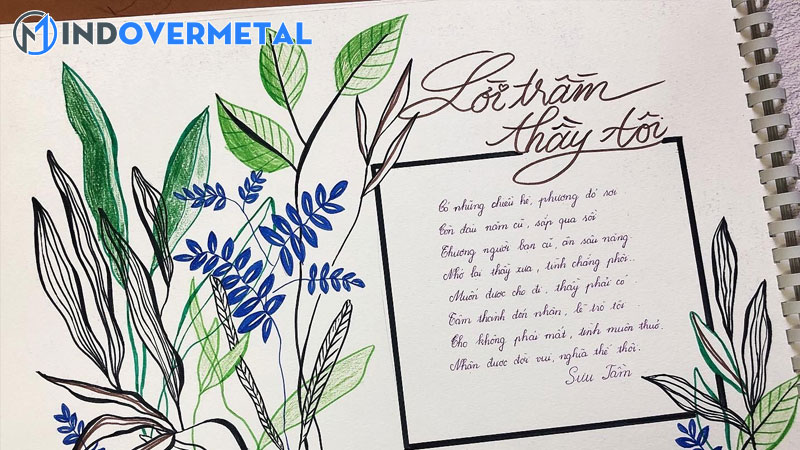 MINDOVERMETAL
Lời trầm
thầy tôi
Có những chiều hè, phương đỏ sơi
Còn đau năm cũ, sắp qua rồi
Thương người bạn cũ, ân sâu nặng
Nhớ lại thầy xưa, tình chẳng phôi..
Muốn được cho đi, thầy phải có
Tâm thành đón nhân, lẽ trò tôi
Cho không phải mất, tình muôn thuở.
Nhân được đời vui, nghĩa thế thôi.
Sưu Tầm